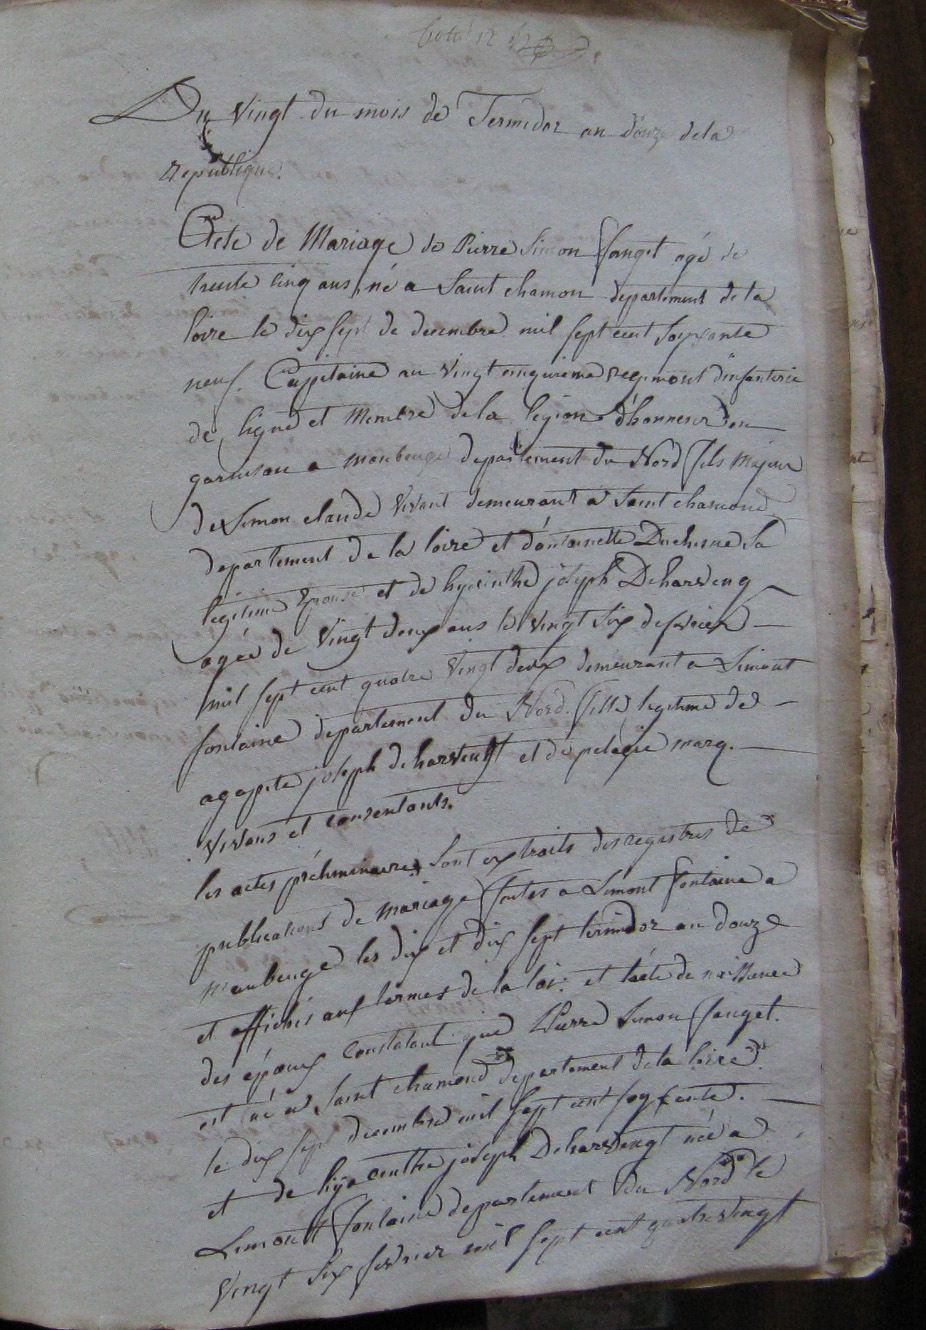 Du Vingt du mois de Termidor an douze de la
republique.
Acte de Mariage de Pierre Simon fanget agé de
trente cinq ans, né a Saint chamon departement de la
loire le dix sept de decembre mil sept cent soixante
neuf. Capitaine au Vingt cinquieme regiment d'infanterie
de ligne et Membre de la legion d'honneur en
garnison a maubeuge departement du Nord fils Majeur
de Simon claude Vivant demeurant a Saint chamond
departement de la loire et d'antoinette Duchesne sa
legitime Epouse et de hyacinthe joseph Deharveng
agée de Vingt deux ans le vingt six de fevrier
mil sept cent quatre Vingt deux demeurant a Limont
fontaine departement du Nord. fille legitime de
agapite joseph deharvengt et de pelagie marq.
Vivans et consentants.
les actes préliminaires sont extraits des registres de
publications de mariage faites a Limont fontaine a
maubeuge les dix et dix sept termidor an douze
et affichés aux termes de la loi. et l'acte de naissance
des époux constatant que Pierre Simon fanget.
est né a Saint chamond departement de la loire
le dix sept decembre mil sept cent soixante.
et de hyacinthe joseph Deharvengt née a
Limont fontaine departement du Nord le
Vingt six fevrier mil sept cent quatre vingt